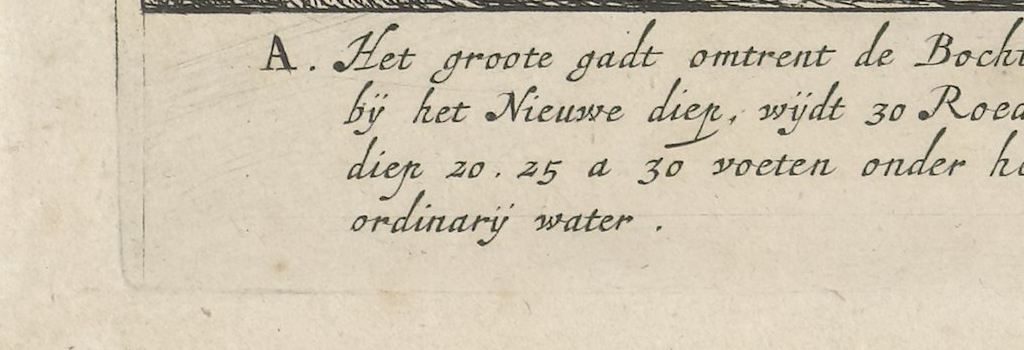 A. Het groote gadt omtrent de Bocht
bij het Nieuwe diep, wijdt 30 Roed
diep 20. 25 a 30 voeten onder he
ordinarij water.